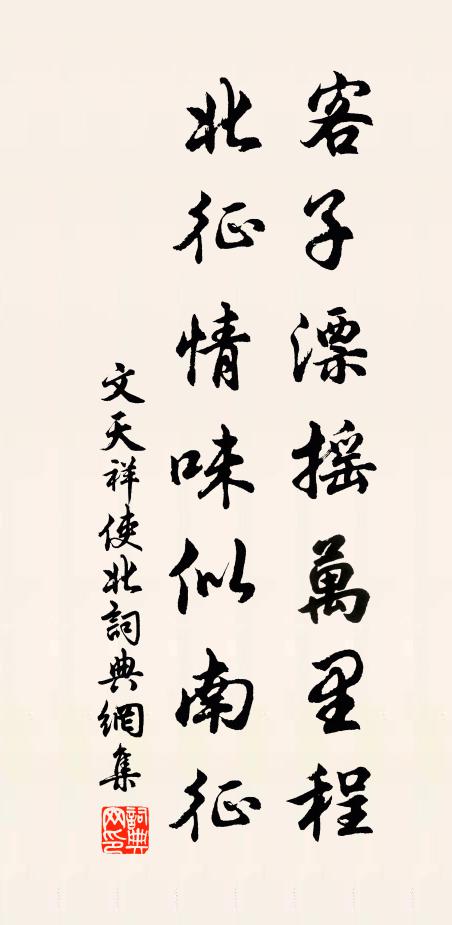 客子漂摇萬里程
北征情味似南征
文天祥使北詞典網集
詞典網印